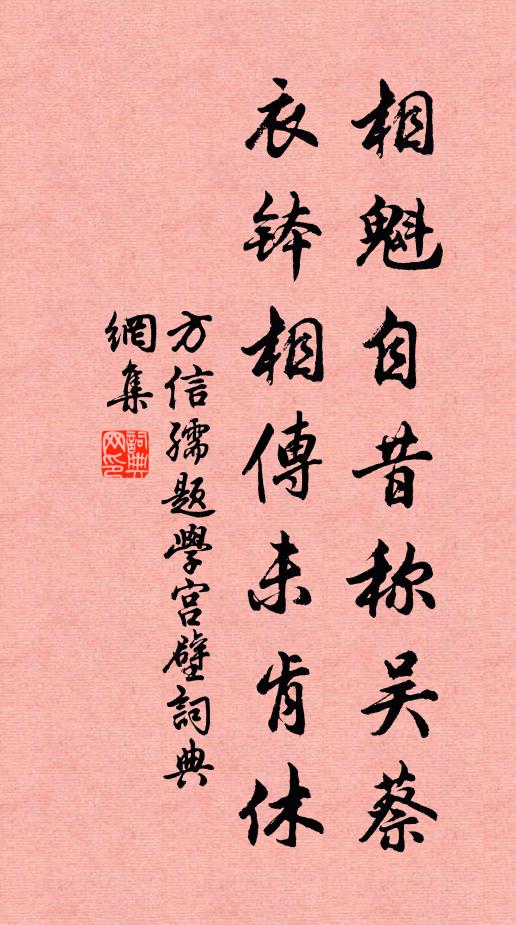 相魁自昔称吴蔡
衣钵相傳未肯休
方信孺题學宫壁詞典
網集
詞典网印